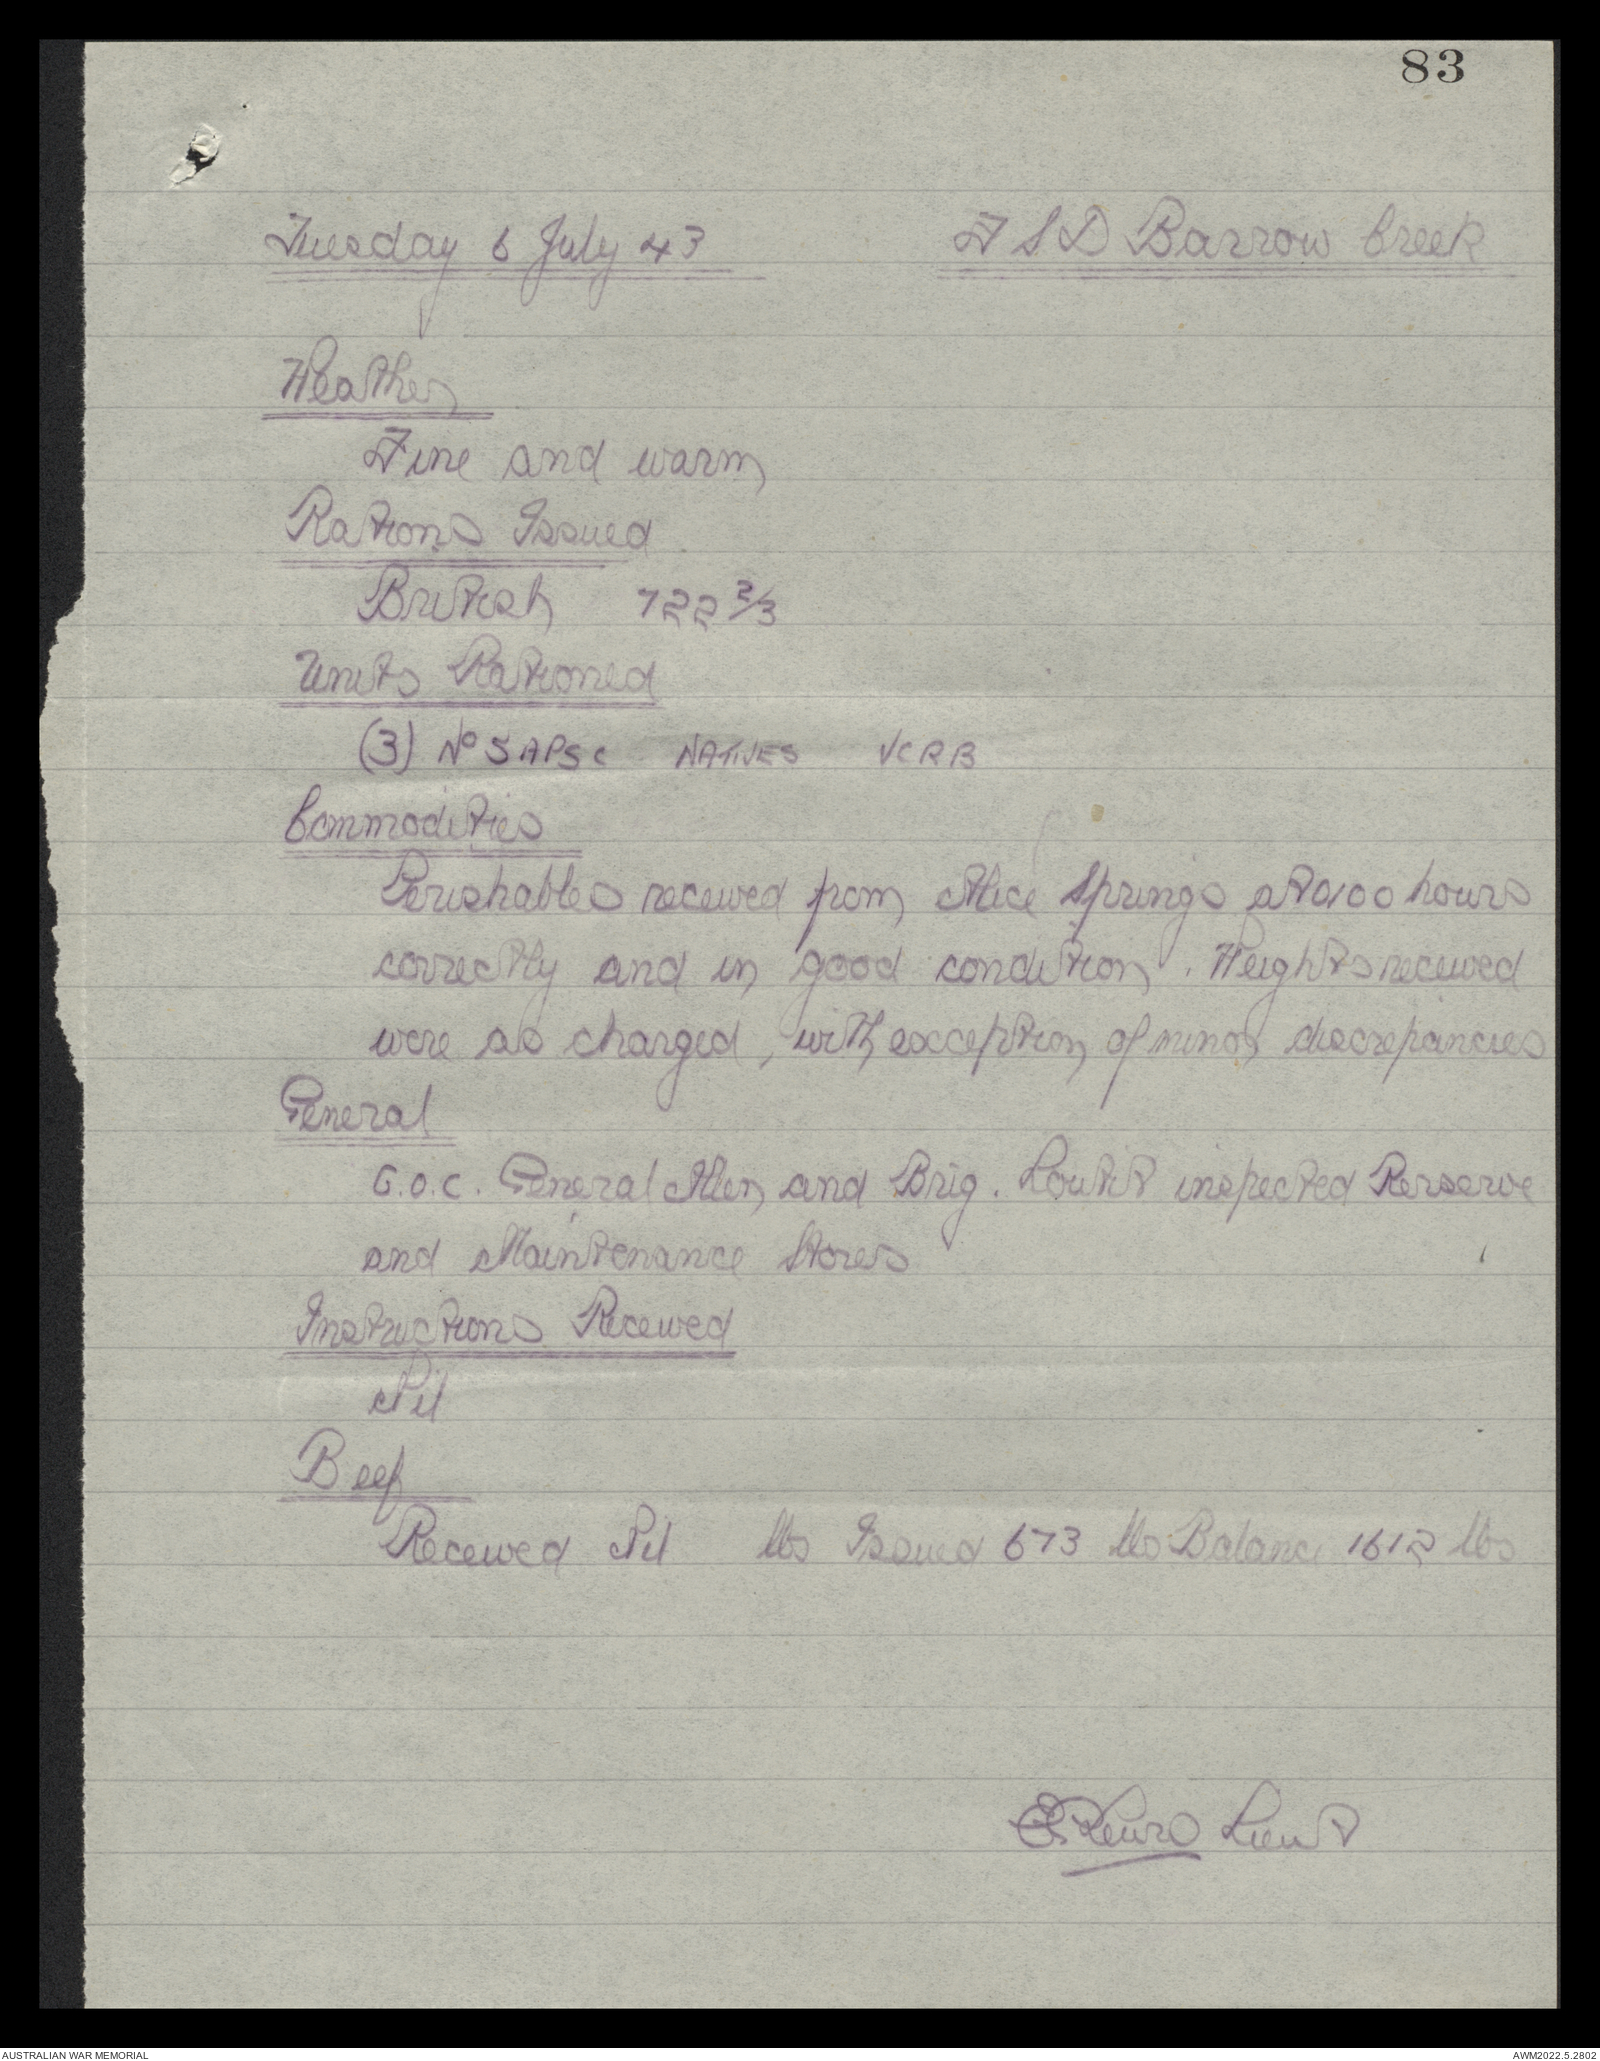 83
Tuesday 6 July 43 F S D Barrow Creek
Weather
Fine and warm
Rations Issued
British 722 2/3
Units Rationed
(3) No 5 APSC NATIVES VCRB
Commodities
Perishables received from Alice Springs at 0100 hours
correctly and in good condition. Weights received
were as charged, with exception of minor discrepancies
General
G.O.C. General Allen and Brig. Loutit inspected Rerserve
and Maintenance Stores
Instructions Received
Nil
Beef
Received Nil lbs Issued 673 lbs Balance 1612 lbs
Lieut
AUSTRALIAN WAR MEMORIAL AWM2022.5.2802